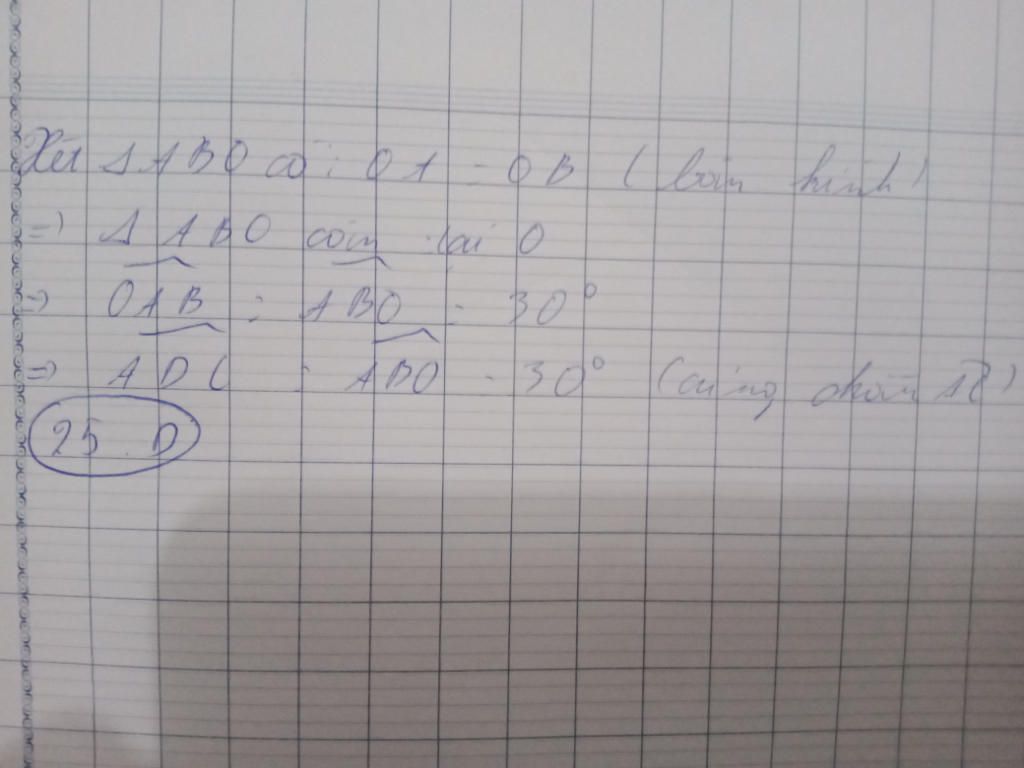 Xét Δ ABO có: OA = OB (bán kính)
=> Δ ABO cân tại O
=> OAB = ABO = 30°
=> ADC = ABO = 30° (cùng chắn AC)
25. D